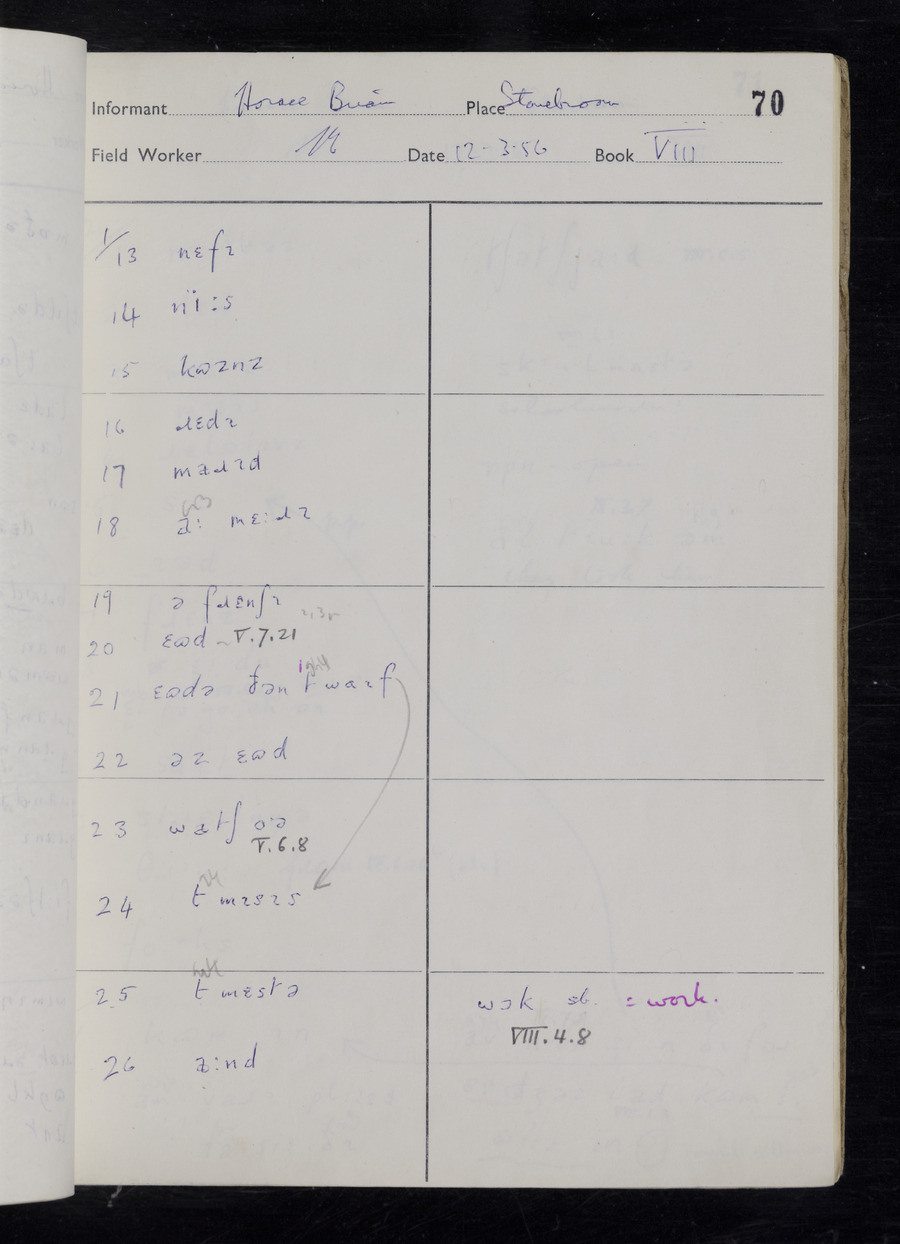 Informant Horace Brian Place Stonebroom 70
Field Worker Date 12-3-56 Book VIII
1/13 nɛfɪ
14 nïːs
15 kɷznz
16 ɹɛdɪ
17 maɹɪd
18 aː mɛːɹɪ
19 ə fɹɛnʃɪ
20 ɛɷd ~ V.7.21
21 ɛɷdə ðən t waɪf
22 əz ɛɷd
23 watʃ oːə
V.6.8
24 t mɪsɪs
25 t mɛstə
wək sb. = work.
VIII.4.8
26 aːnd